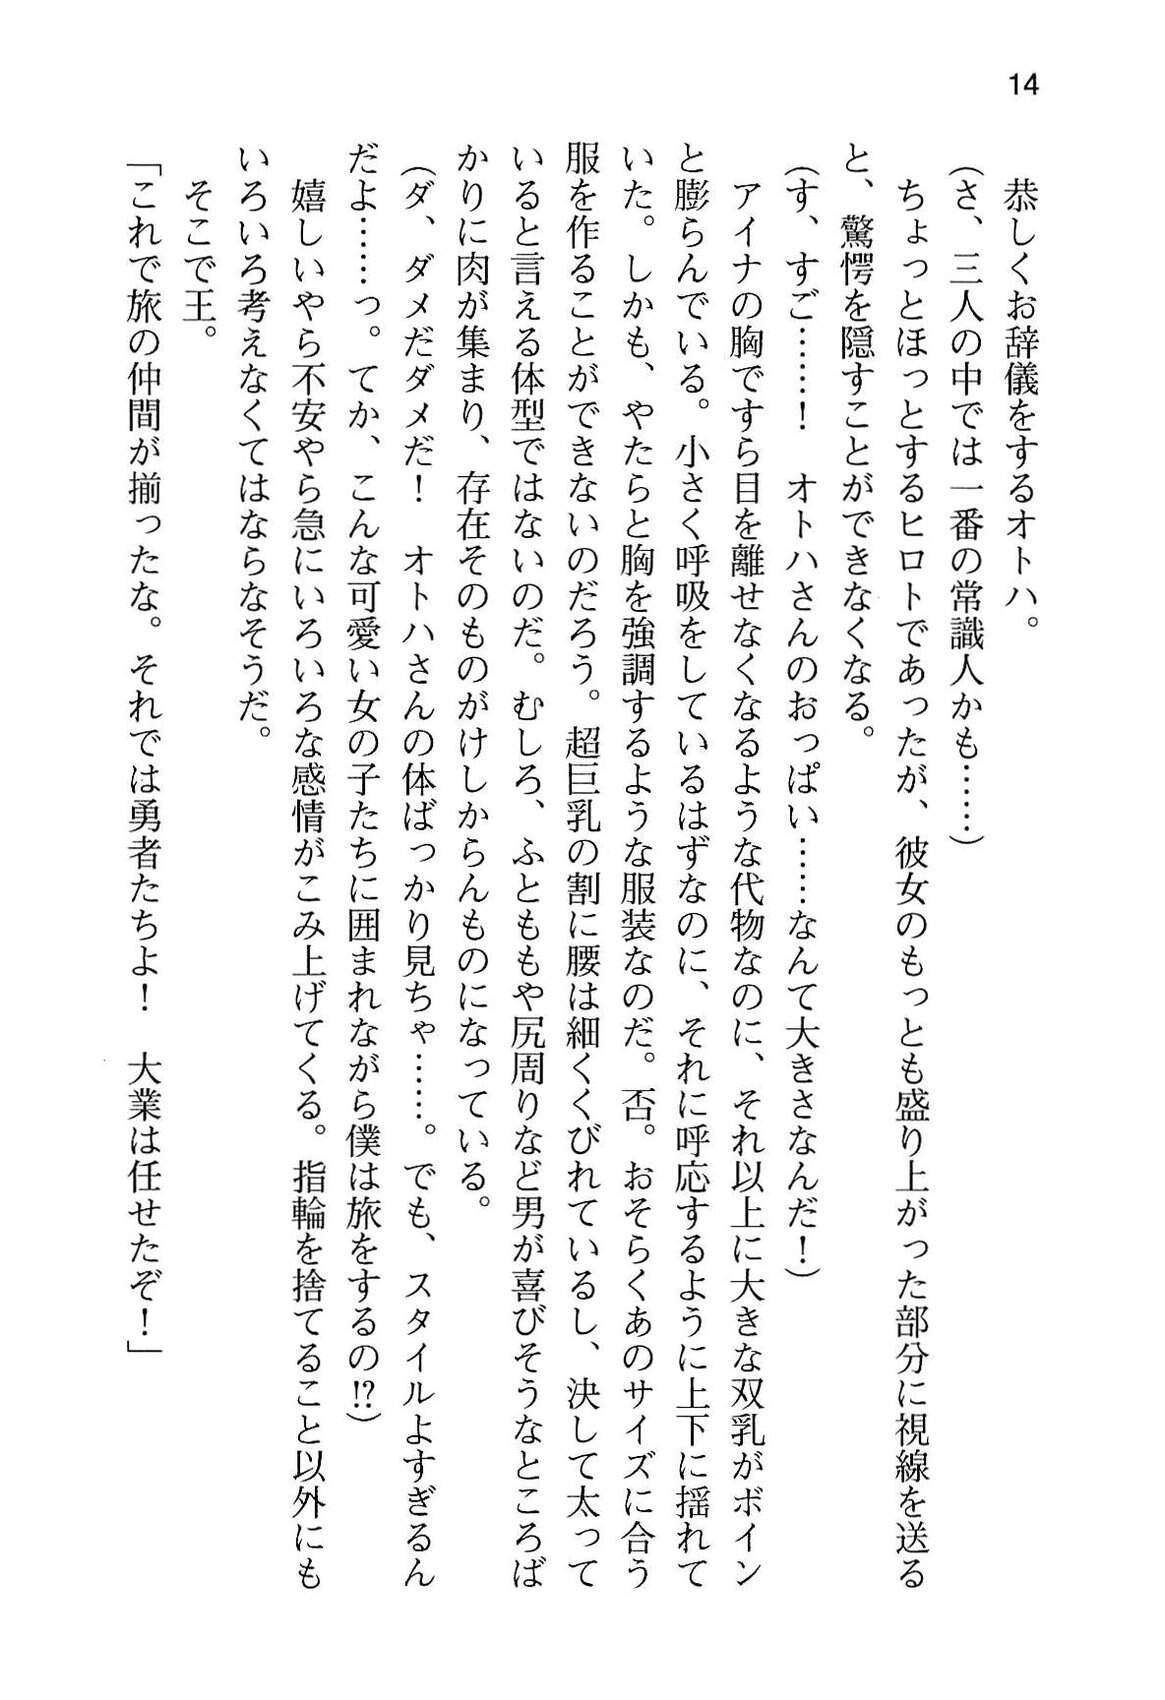 14
恭しくお辞儀をするオトハ。
（さ、三人の中では一番の常識人かも……）
ちょっとほっとするヒロトであったが、彼女のもっとも盛り上がった部分に視線を送る
と、驚愕を隠すことができなくなる。
（す、すご……！　オトハさんのおっぱい……なんて大きさなんだ！）
アイナの胸ですら目を離せなくなるような代物なのに、それ以上に大きな双乳がボイン
と膨らんでいる。小さく呼吸をしているはずなのに、それに呼応するように上下に揺れて
いた。しかも、やたらと胸を強調するような服装なのだ。否。おそらくあのサイズに合う
服を作ることができないのだろう。超巨乳の割に腰は細くくびれているし、決して太って
いると言える体型ではないのだ。むしろ、ふとももや尻周りなど男が喜びそうなところば
かりに肉が集まり、存在そのものがけしからんものになっている。
（ダ、ダメだダメだ！　オトハさんの体ばっかり見ちゃ……。でも、スタイルよすぎるん
だよ……っ。てか、こんな可愛い女の子たちに囲まれながら僕は旅をするの!?）
嬉しいやら不安やら急にいろいろな感情がこみ上げてくる。指輪を捨てること以外にも
いろいろ考えなくてはならなそうだ。
そこで王。
「これで旅の仲間が揃ったな。それでは勇者たちよ！　大業は任せたぞ！」